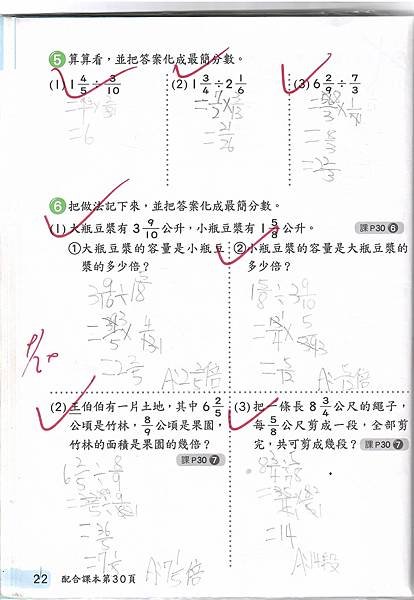 5 算算看，並把答案化成最簡分數。
(1) 1 4/5 ÷ 3/10 (2) 1 3/4 ÷ 2 1/6 (3) 6 2/9 ÷ 7/3
= 6
= 21/26
6 把做法記下來，並把答案化成最簡分數。
(1) 大瓶豆漿有 3 9/10 公升，小瓶豆漿有 1 5/8 公升。 課P30 6
①大瓶豆漿的容量是小瓶豆漿的多少倍？
3 9/10 ÷ 1 5/8
= 2 2/5
A: 2 2/5 倍
②小瓶豆漿的容量是大瓶豆漿的多少倍？
1 5/8 ÷ 3 9/10
= 5/12
A: 5/12 倍
(2) 王伯伯有一片土地，其中 6 2/5
公頃是竹林，8/9 公頃是果園，
竹林的面積是果園的幾倍？
課P30 7
6 2/5 ÷ 8/9
= 36/5
= 7 1/5
A: 7 1/5 倍
(3) 把一條長 8 3/4 公尺的繩子，
每 5/8 公尺剪成一段，全部剪
完，共可剪成幾段？ 課P30 7
8 3/4 ÷ 5/8
= 14
A: 14段
22 配合課本第30頁